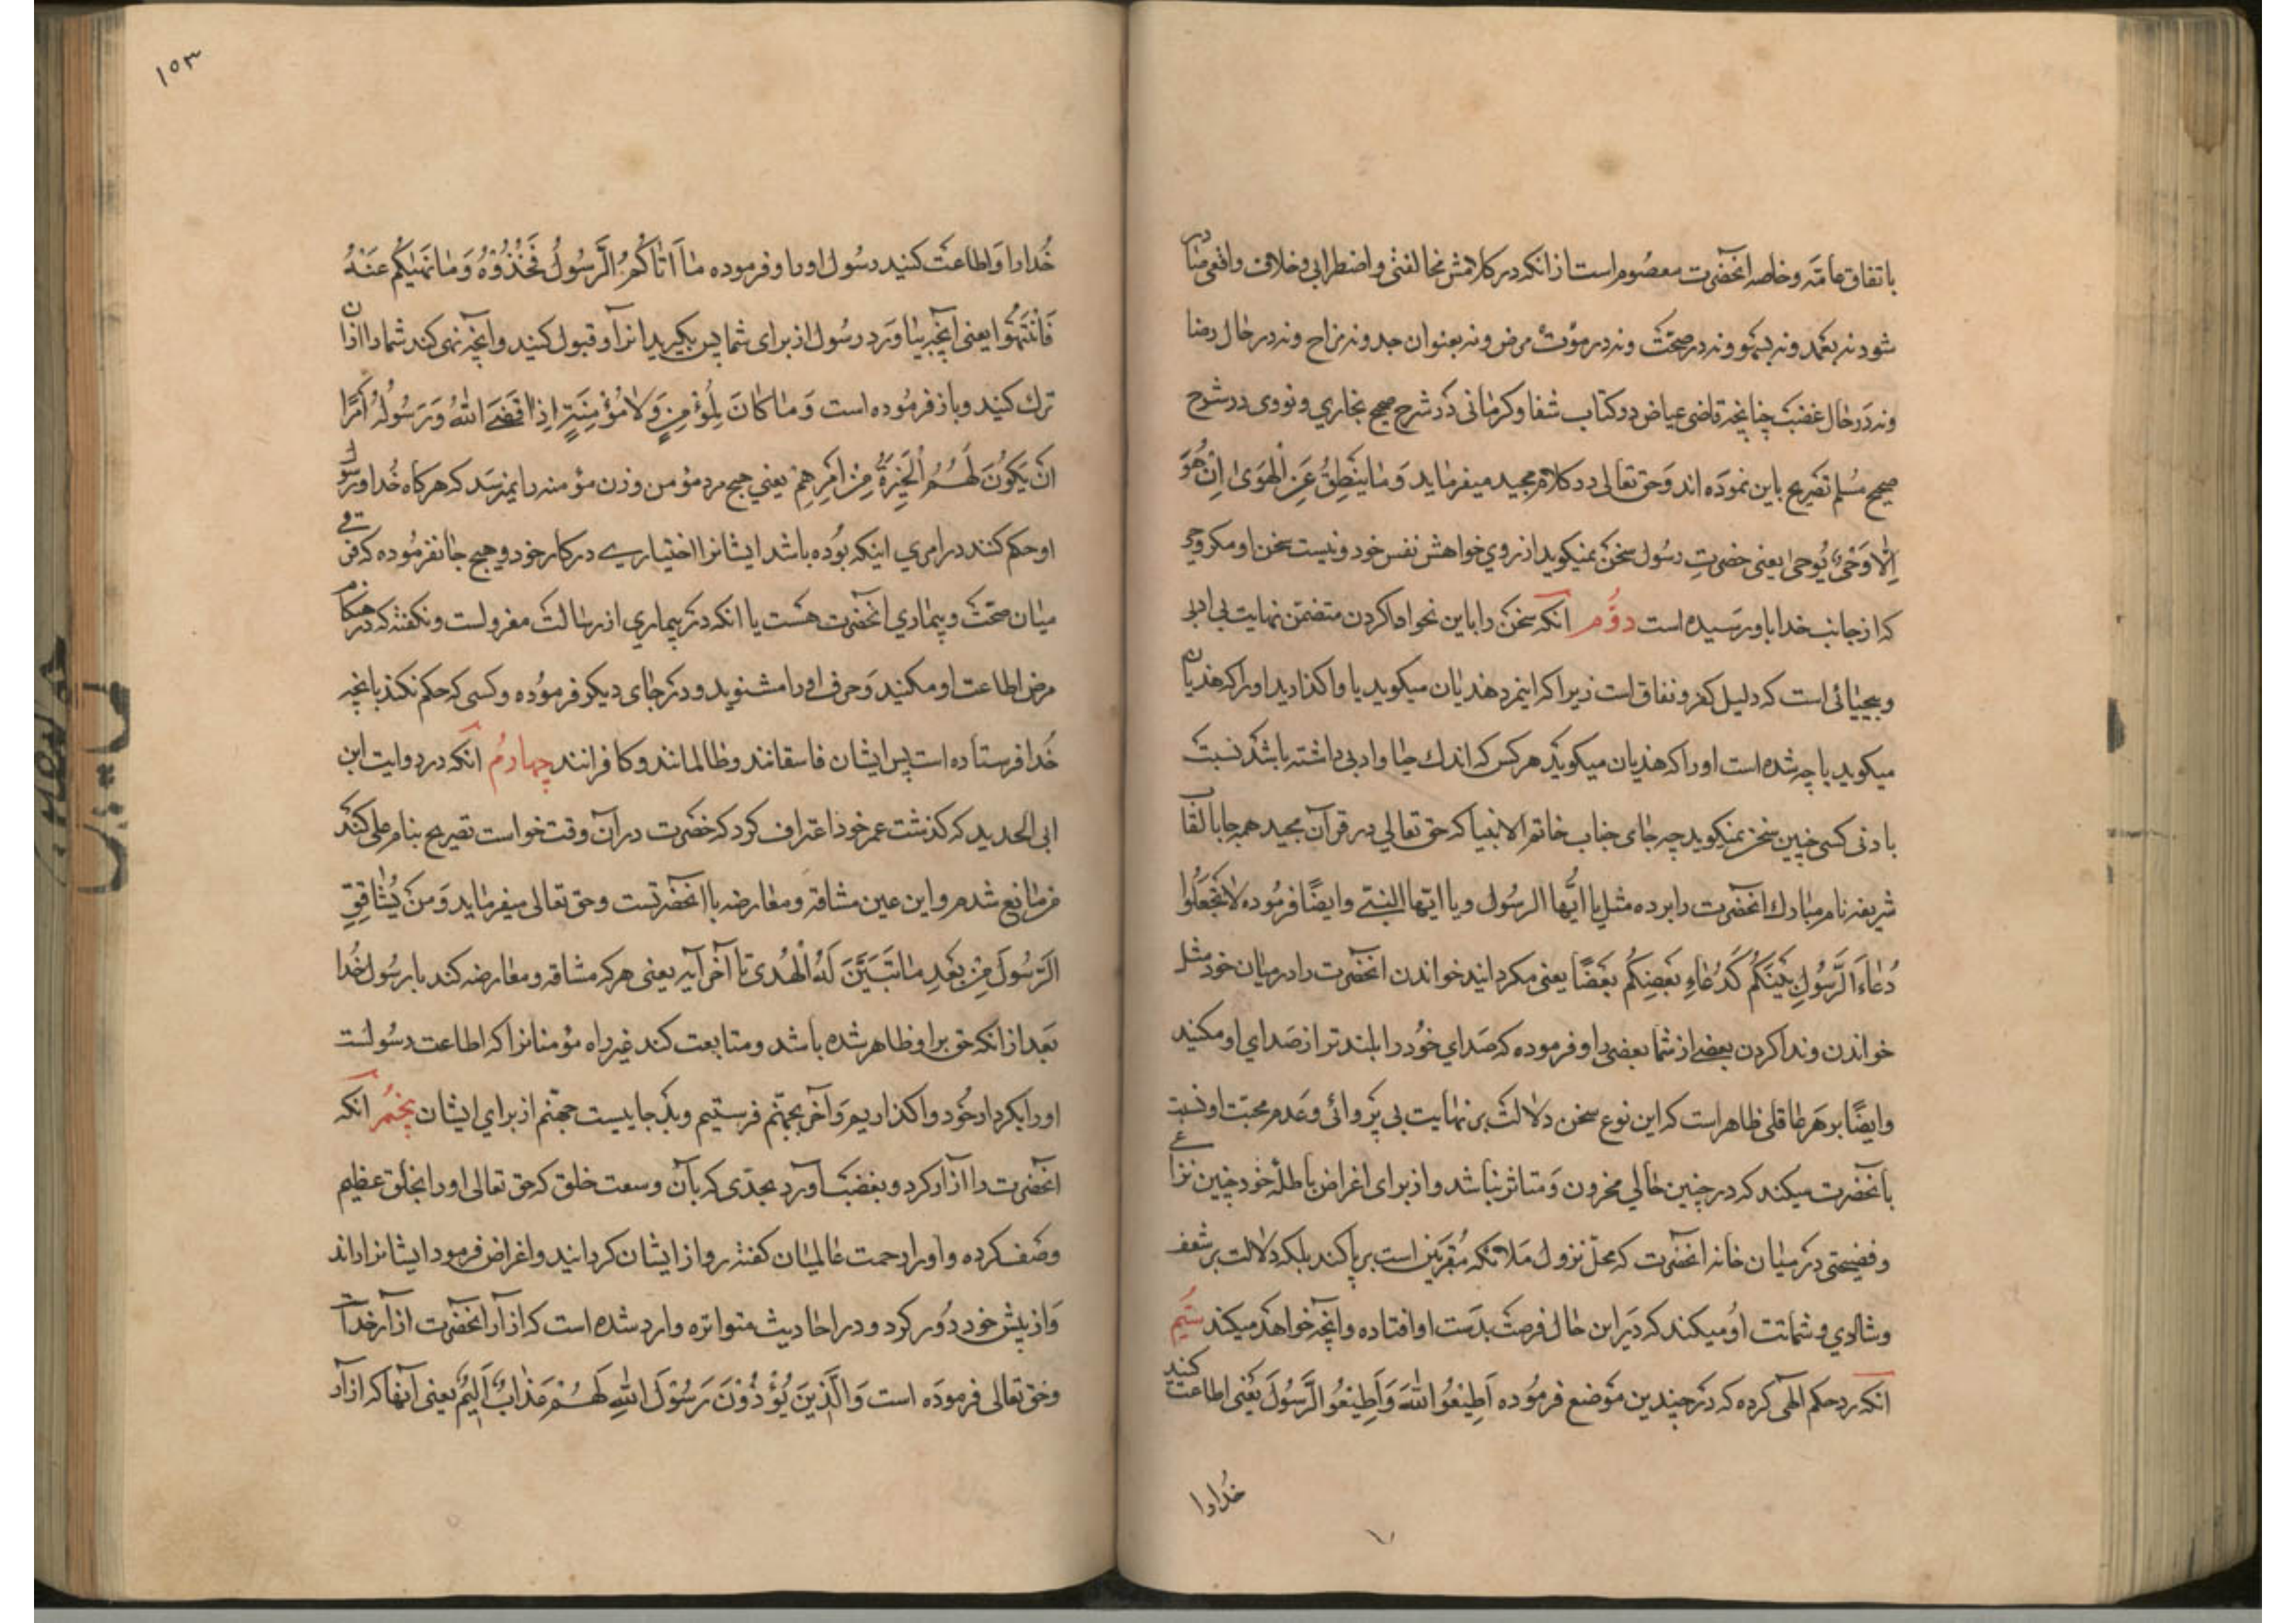 باتفاق عامّه و خاصه آنحضرت معصوم است از انکه در کلامش مخالفتی و اضطرابی و خلاف واقعی صادر
شود نه بعمد و نه بسهو و نه در صحّت و نه در موت مرض و نه بعنوان جد و نه مزاح و نه در حال رضا
و نه در حال غضب چنانچه قاضی عیاض در کتاب شفا و کرمانی در شرح صحیح بخاري و نووی در شرح
صحیح مسلم تصریح باین نموده اند و حق تعالی در کلام مجید میفرماید وَمَا یَنطِقُ عَنِ الْهَوَی اِنْ هُوَ
اِلّا وَحْیٌ یُوحی یعنی حضرتِ رسُول سخن نمیکوید از روي خواهش نفس خود و نیست سخن او مکر وحی
که از جانب خدا باو رسیده است دوُّم آنکه سخن را باین نحو ادا کردن متضمّن نهایت بی ادبی
و بیحیائی است که دلیل کفر و نفاق است زیرا که اینمرد هذیان میکوید یا واکذارید او را که هذیان
میکوید یا چه شده است او را که هذیان میکوید هر کس که اندك حیا و ادبی داشته باشد نسبت
بادنی کسی چنین سخن نمیکوید چه جای جناب خاتم الانبیا که حق تعالي در قرآن مجید همه جا بالقاب
شریفه نام مبارك آنحضرت را برده مثل یا ایُّها الرسُول و یا ایّها النبیّ و ایضًا فرمُوده لا تَجْعَلُوا
دُعاءَ الرَّسُولِ بَیْنَکُم کَدُعاءِ بَعْضِکُم بَعْضًا یعنی مکردانید خواندن آنحضرت را در میان خود مثل
خواندن و ندا کردن بعضی از شما بعضی را و فرموده که صداي خُود را بلندتر از صداي او مکنید
و ایضًا بر هر عاقلی ظاهر است که این نوع سخن دلالت بر نهایت بی پروائی و عدم محبّت او نسبت
بآنحضرت میکند که در چنین حالي محزون و متاثر نباشد و از برای اغراض باطلهٔ خود چنین نزاعی
و فضیحتی در میان خانه آنحضرت که محلّ نزول ملائکه مُقرّبین است بر پا کند بلکه دلالت بر شعف
و شادي و شماتت او میکند که در این حال فرصت بدست او افتاده و آنچه خواهد میکند سیّم
آنکه رد حکم الهی کرده که در چندین موضع فرمُوده اَطِیْعُوا اللهَ وَاَطِیْعُوا الرَّسُولَ یعنی اطاعت کنید
خُدارا
۱۵۳
خُدارا و اطاعت کنید رسُول او را و فرموده مٰا اٰتٰاکُمُ الرَّسُولُ فَخُذُوْهُ وَمٰا نَهٰیکُم عَنْهُ
فَانْتَهُوا یعنی آنچه بیاورد رسُول از برای شما پس بکیرید آنرا و قبول کنید و آنچه نهی کند شما را از آن
ترك کنید و باز فرموده است وَمٰا کٰانَ لِمُؤْمِنٍ وَلٰا مُؤْمِنَةٍ اِذا قَضَی اللهُ وَرَسُولُهُ اَمْرًا
اَنْ یَکُونَ لَهُمُ الْخِیَرَةُ مِنْ اَمْرِهِمْ یعني هیچ مرد مؤمن و زن مؤمنه را نمیرسد که هر کاه خُدا و رسول
او حکم کنند در امري اینکه بوُده باشد ایشانرا اختیارے در کار خود و هیچ جا نفرموده که فرقی
میان صحّت و بیماري آنحضرت هست یا انکه در بیماري از رسالت معزولست و نکفته که در هنکام
مرض اطاعت او مکنید و حرف او را مشنوید و در جای دیکر فرموده و کسی که حکم نکند بانچه
خُدا فرستاده است پس ایشان فاسقانند و ظالمانند و کافرانند چهارُم آنکه در روایت ابن
ابی الحدید که کذشت عمر خود اعتراف کرد که حضرت در آن وقت خواست تصریح بنام علی کند
من مانع شدم و این عین مشاقه و معارضه با آنحضرتست و حق تعالی میفرماید وَمَن یُشٰاقِقِ
الرَّسُولَ مِنْ بَعْدِ مٰا تَبَیَّنَ لَهُ الْهُدیٰ تا آخر آیه یعنی هر که مشاقه و معارضه کند با رسُول خُدا
بَعد از انکه حق بر او ظاهر شده باشد و متابعت کند غیر راه مؤمنانرا که اطاعت رسُولست
او را بکردار خُود واکذاریم و آخر بجهنّم فرستیم و بد جاییست جهنّم از براي ایشان پنجُم آنکه
آنحضرت را آزار کرد و بغضب آورد بحدّی که بآن وسعت خلق که حق تعالی او را بخلق عظیم
وصف کرده و او را رحمت عالمیان کفته رو از ایشان کردانید و اعراض فرمود ایشانرا راند
و از پیش خود دُور کرد و در احادیث متواتره وارد شده است که ازار آنحضرت ازار خداست
و حق تعالی فرموده است وَالَّذِیْنَ یُؤْذُوْنَ رَسُوْلَ اللهِ لَهُمْ عَذٰابٌ اَلِیْمٌ یعنی آنها که ازار